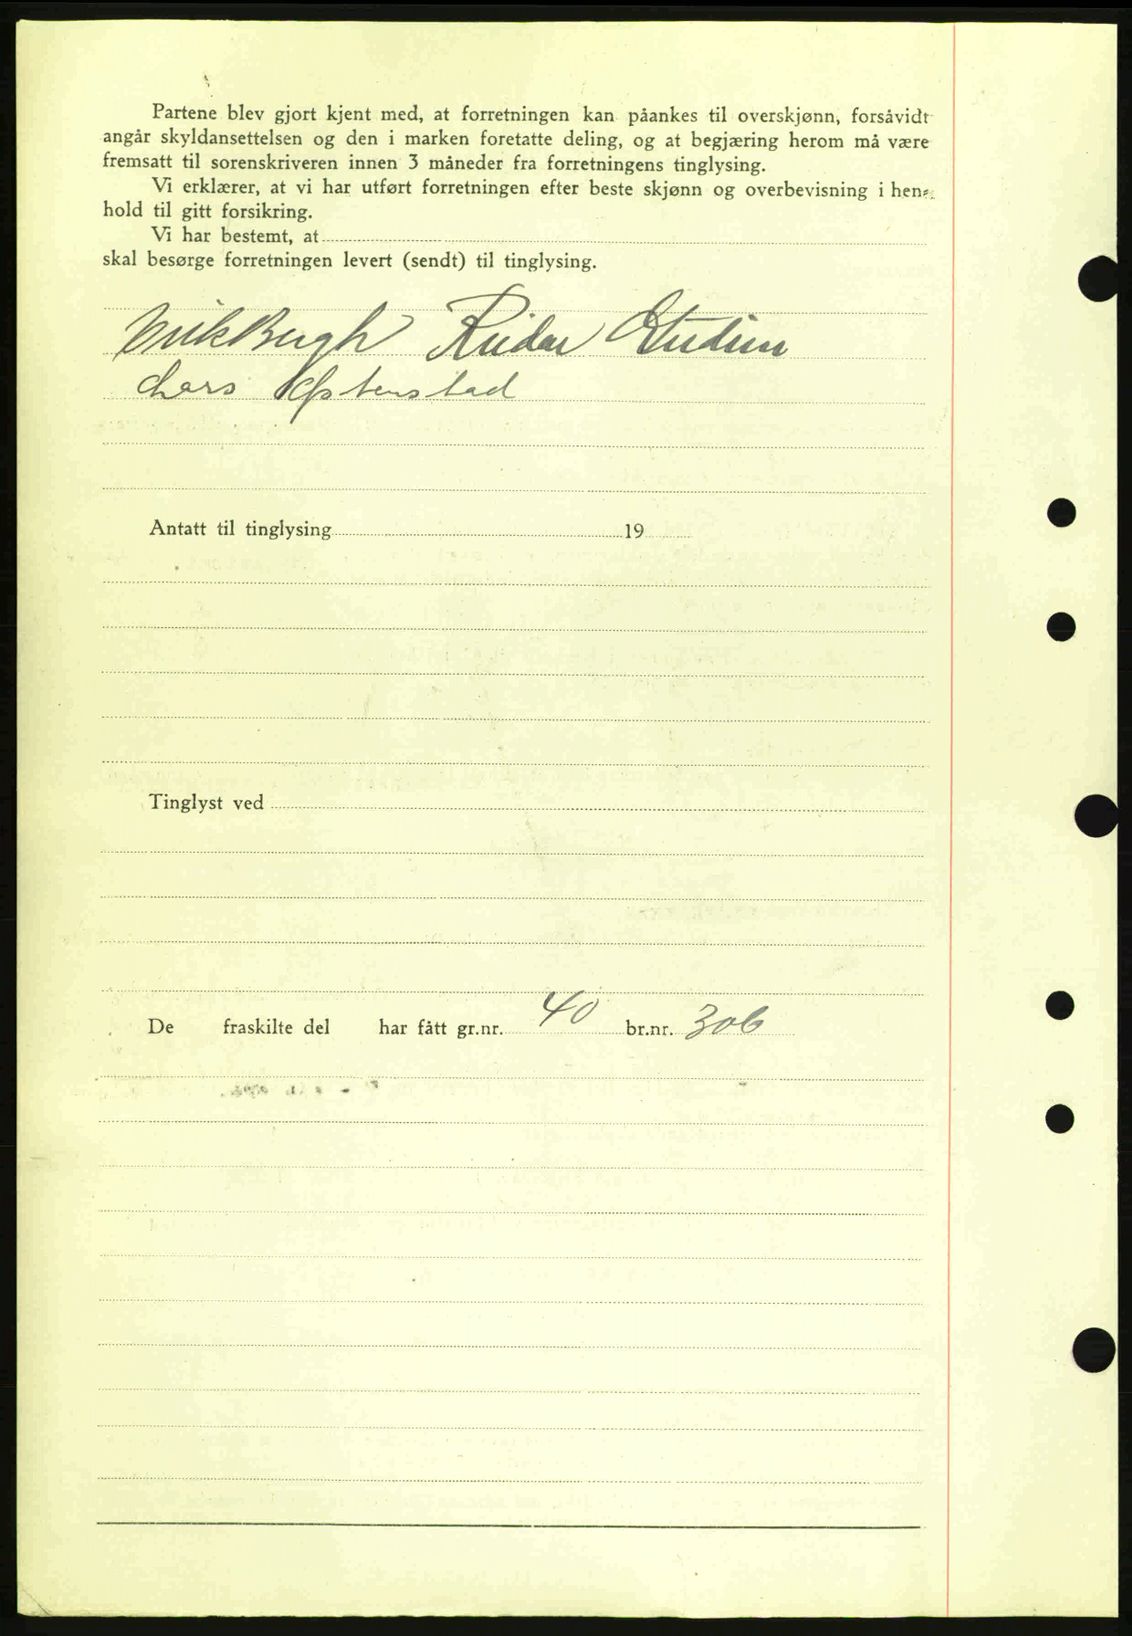 Partene blev gjort kjent med, at forretningen kan påankes til overskjønn, forsåvidt
angår skyldansettelsen og den i marken foretatte deling, og at begjæring herom må være
fremsatt til sorenskriveren innen 3 måneder fra forretningens tinglysing.
Vi erklærer, at vi har utført forretningen efter beste skjønn og overbevisning i hen-
hold til gitt forsikring.
Vi har bestemt, at
skal besørge forretningen levert (sendt) til tinglysing.
Erik Bergh Reidar
Lars Opstenstad
Antatt til tinglysing 19
Tinglyst ved
De fraskilte del har fått gr.nr. 40 br.nr. 306